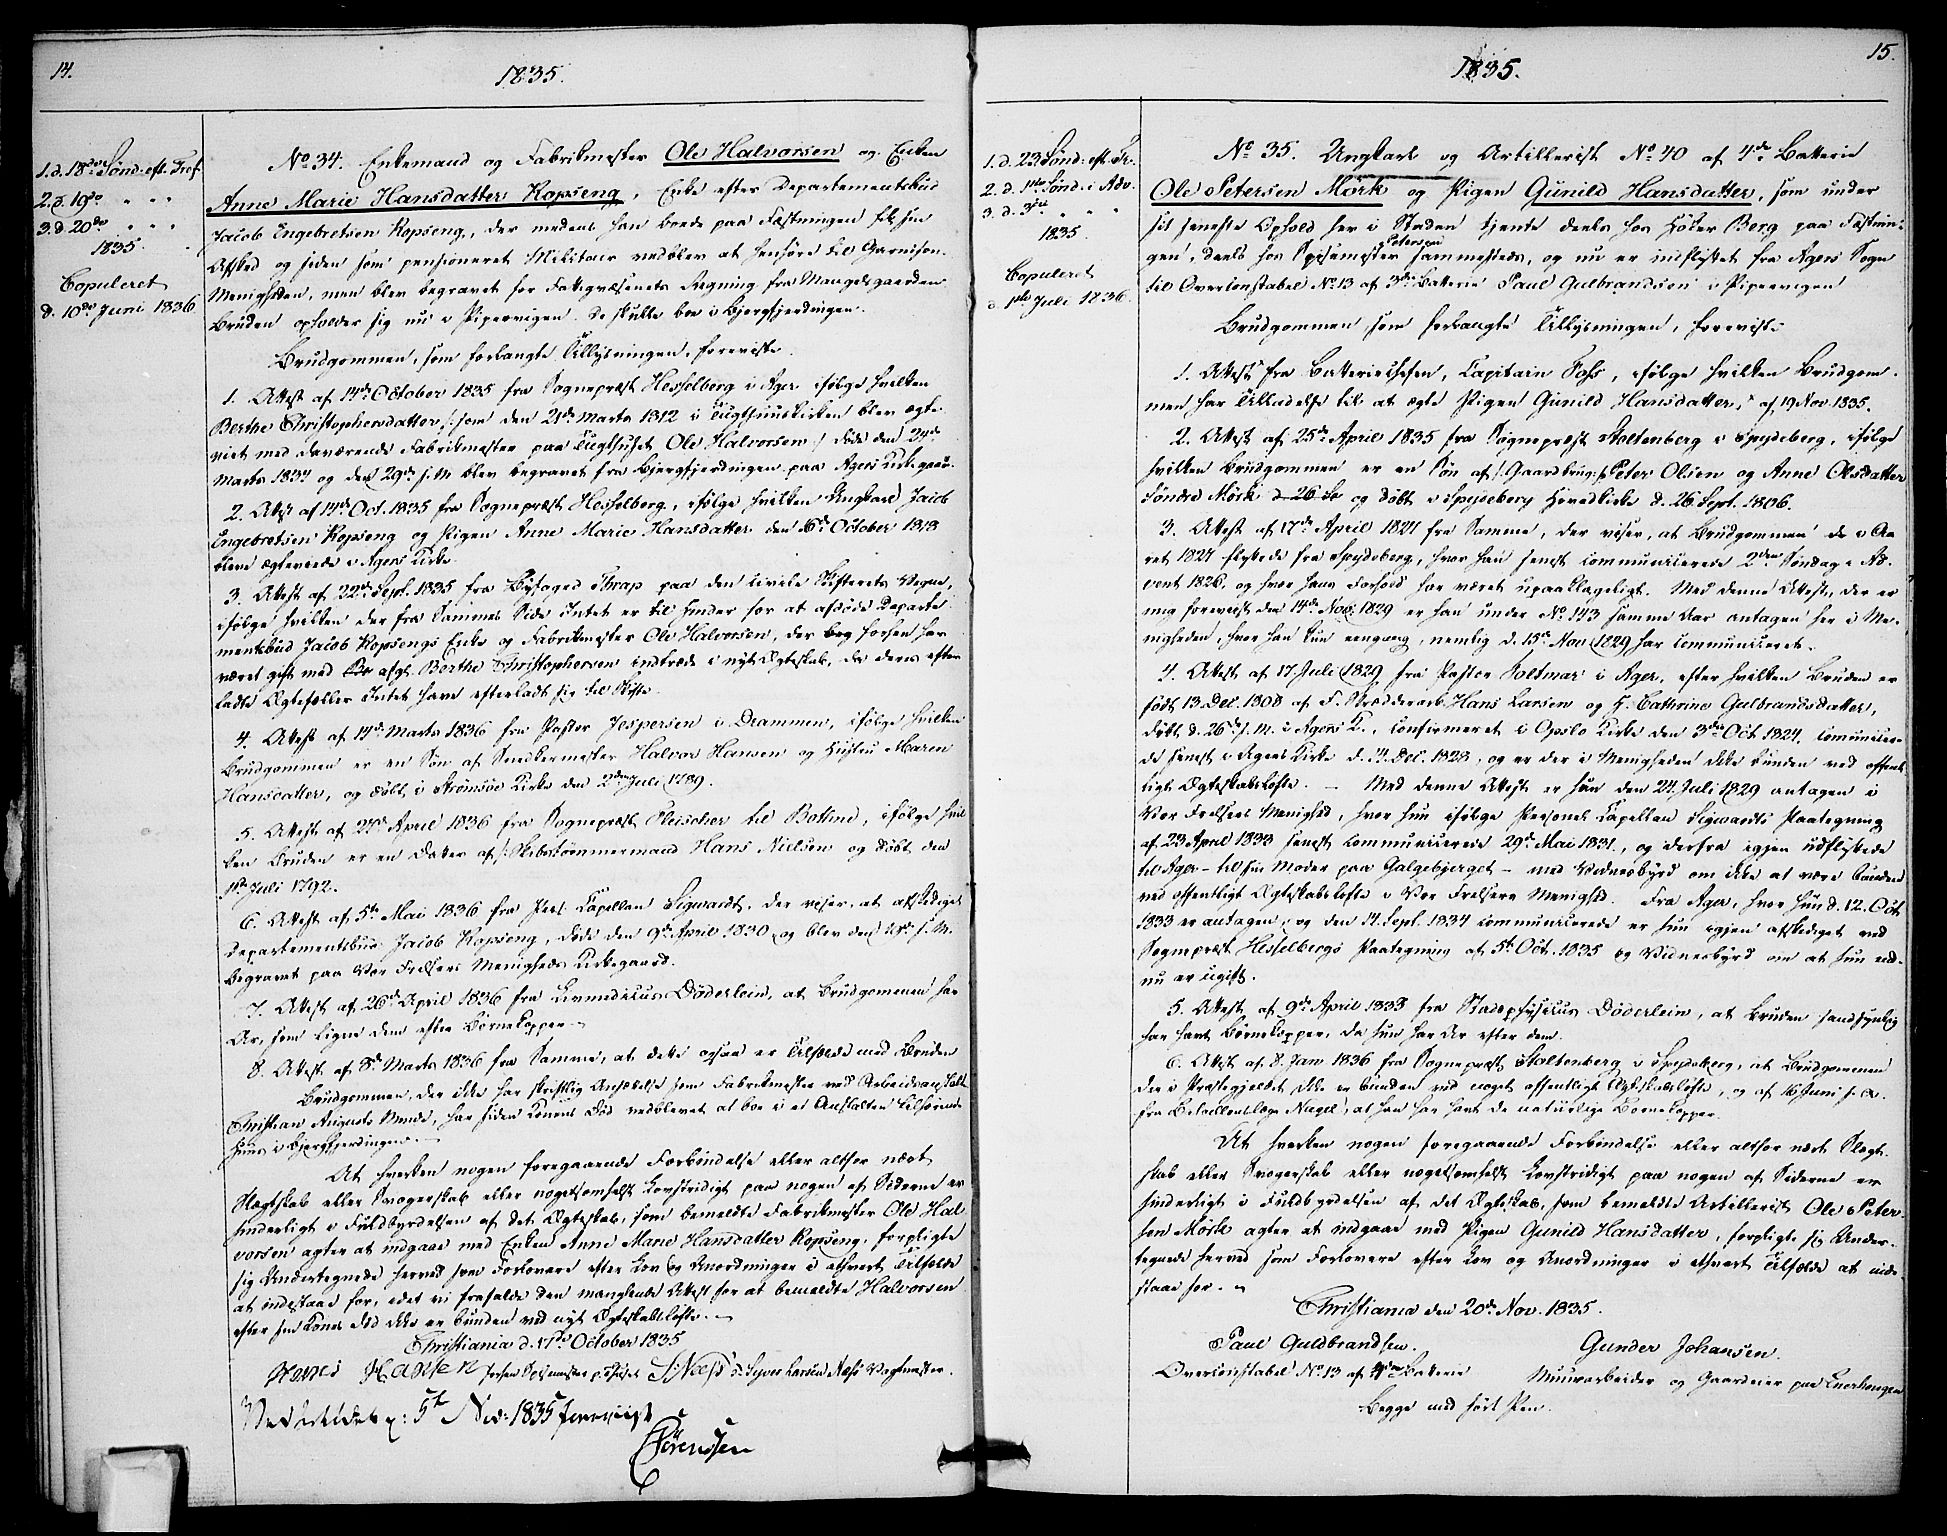 14.
1835.
1. d. 18de Sönd. eft. Tref.
2. d. 19de " " "
3. d. 20de " " "
1835.
Copuleret
d. 10de Juni 1836
No 34. Enkemand og Fabrikmester Ole Halvorsen og Enken
Anne Marie Hansdatter Kopseng, Enke efter Departementsbud
Jacob Engebretsen Kopseng, der medens han boede paa Fæstningen fik sin
Afsked og siden som pensioneret Militair vedblev at henhöre til Garnison-
Menigheden, men blev begravet for Fattigvæsenets Regning fra Mangelsgaarden
Bruden opholder sig nu i Pipervigen. De skulle boe i Bjergfjerdingen.
Brudgommen, som forlangte Tillysningen, foreviste
1. Attest af 14de October 1835 fra Sognepræst Hesselberg i Ager ifölge hvilken
Berthe Christophersdatter /: som den 21de Marts 1812 i Tugthuuskirken blev ægte-
viet med daværende Fabrikmester paa Tugthuset Ole Halvorsen :/ döde den 24de
Marts 1834 og den 29de s. M. blev begravet fra Bjergfjerdingen paa Agers Kirkegaard.
2. Attest af 14de Oct. 1835 fra Sognepræst Hesselberg, ifölge hvilken Ungkarl Jacob
Engebretsen Kopseng og Pigen Anne Marie Hansdatter den 16de October 1818
bleve ægteviede i Agers Kirke.
3. Attest af 22de Sept. 1835 fra Byfoged Thrap paa den civile Skifterets Vegne,
ifölge hvilken der fra Sammes Side Intet er til Hinder for at afdöde Departe-
mentsbud Jacob Kopsengs Enke og Fabrikmester Ole Halvorsen, der forhen har
været gift med afg. Berthe Christophersen indtræde i nyt Ægteskab, da deres efter-
ladte Ægtefæller Intet have efterladt sig til Skifte.
4. Attest af 14de Marts 1836 fra Pastor Jespersen i Drammen, ifölge hvilken
Brudgommen er en Sön af Snedkermester Halvor Hansen og Hustru Maren
Hansdatter, og döbt i Strömsöe Kirke den 2den Juli 1789.
5. Attest af 27de April 1836 fra Sognepræst Fleischer til Botne, ifölge hvil-
ken Bruden er en Datter af /: Skibstömmermand Hans Nielsen og döbt den
1ste Juli 1792.
6. Attest af 5te Mai 1836 fra Pers. Capellan Sigwardt, der viser, at afskediget
Departementsbud Jacob Kopseng, döde den 9de April 1830 og blev den s. M.
begravet paa Vor Frelsers Menigheds Kirkegaard.
7. Attest af 26de April 1836 fra Livmedicus Döderlein, at Brudgommen har
Ar, som ligne dem efter Börnekopper.
8. Attest af 8de Marts 1836 fra Samme, at dette ogsaa er Tilfælde med Bruden
Brudgommen, der ikke har skriftlig Ansættelse som Fabrikmester ved Arbeidsanstalt
Christian Augusts Minde, har siden Konens Död vedblevet at boe i et Anstalten tilhörende
Huus i Bjergfjerdingen.
At hverken nogen foregaaende Forbindelse eller altfor nært
Slægtskab eller Svogerskab eller nogetsomhelst Lovstridigt paa nogen af Siderne er
hinderligt i Fuldbyrdelsen af det Ægteskab, som bemeldte Fabrikmester Ole Hal-
vorsen agter at indgaae med Enken Anne Marie Hansdatter Kopseng, forpligte
sig Undertegnede herved som Forlovere efter Lov og Anordninger i ethvert Tilfælde
at indestaae for, idet vi frafalde den manglende Attest for at bemeldte Halvorsen
efter sin Kones Död ikke er bunden ved nyt Ægteskabslöfte.
Christiania d. 17de October 1835
Hansen S: Næss Syver Larsen Næss Vagtmester.
5te Nov: 1835 forevist
Sörensen
15.
1835.
1. d. 23 Sönd: eft. Tr.
2. d. 1ste Sönd. i Adv.
3. d. 3die " " "
1835.
Copuleret
d. 1ste Juli 1836.
No 35. Ungkarl og Artillerist No 40 af 4de Batterie
Ole Petersen Mörk og Pigen Gunild Hansdatter, som under
sit seneste Ophold her i Staden tjente deels hos Höker Berg paa Fæstnin-
gen, deels hos Spisemester Petersen sammesteds, og nu er indflyttet fra Agers Sogn
til Overconstabel No 13 af 3die Batterie Paul Gulbrandsen i Pipervigen
Brudgommen, som forlangte Tillysningen, foreviste
1. Attest fra Batteriechefen, Capitain Foss, ifölge hvilken Brudgom-
men har Tilladelse til at ægte Pigen Gunild Hansdatter, af 19 Nov. 1835.
2. Attest af 25de April 1835 fra Sognepræst Stoltenberg i Spydeberg, ifölge
hvilken Brudgommen er en Sön af /: Gaardbrug: :/ Peter Olsen og Anne Olsdatter
Söndre Mörk d. 26 Se og döbt i Spydeberg Hovedkirke d. 26 Sept. 1806.
3. Attest af 17de April 1827 fra Samme, der viser, at Brudgommen da i Aa-
ret 1827 flyttede fra Spydeberg, hvor han senest communicerede 2den Söndag i Ad-
vent 1826, og hvor hans Forhold har været upaaklageligt. Med denne Attest, der er
mig forevist den 14de Nov. 1829 er han under No 143 samme Aar antagen her i Me-
nigheden, hvor han kun eengang, nemlig d. 15de Nov. 1829 har communiceret.
4. Attest af 17. Juli 1829 fra Pastor Voltmar i Ager, efter hvilken Bruden er
födt 13. Dec. 1808 af F. Hans Larsen og H. Cathrine Gulbrandsdatter,
döbt d. 26de s. M. i Agers K., confirmeret i Opslo Kirke den 3die Oct 1824, communicere-
de senest i Agers Kirke d. 14. Dec. 1828, og er der i Menigheden ikke bunden ved offent-
ligt Ægteskabslöfte. – Med denne Attest er hun den 24 Juli 1829 antagen i
Vor Frelsers Menighed, hvor hun ifölge Personel Capellan Sigwardts Paategning
af 23 April 1833 senest communicerede 29de Mai 1831, og derfra igjen udflyttede
til Ager – til sin Moder paa Galgebjerget – med Vidnesbyrd om ikke at være bunden
ved offentligt Ægteskabslöfte i Vor Frelsers Menighed. Fra Ager, hvor hun d. 12. Oct
1833 er antagen, og den 14. Sept. 1834 communicerede er hun igjen afskediget ved
Sognepræst Hesselbergs Paategning af 5te Oct. 1835 og Vidnesbyrd om at hun end-
nu er ugift.
5. Attest af 9de April 1833 fra Stadsphysicus Döderlein, at Bruden sandsynlig
har havt Börnekopper, da hun har Ar efter dem.
6. Attest af 8. Jan. 1836 fra Sognepræst Stoltenberg i Spydeberg, at Brudgommen
der i Præstegjeldet ikke er bunden ved noget offentligt Ægteskabslöfte, og af 16 Juni s. A.
fra Bataillonslæge Nagel, at han har havt de naturlige Börnekopper.
At hverken nogen foregaaende Forbindelse eller altfor nært Slægt-
skab eller Svogerskab eller nogetsomhelst Lovstridigt paa nogen af Siderne er
hinderligt i Fuldbyrdelsen af det Ægteskab, som bemeldte Artillerist Ole Peter-
sen Mörk agter at indgaae med Pigen Gunild Hansdatter, forpligte sig Under-
tegnede herved som Forlovere efter Lov og Anordninger i ethvert Tilfælde at inde-
staae for.
Christiania den 20de Nov. 1835.
Paul Guldbrandsen. Gunder Johansen.
Overconstabel No 13 af Batterie Muurarbeider og Gaardeier paa Enerhougen
Begge med fört Pen.